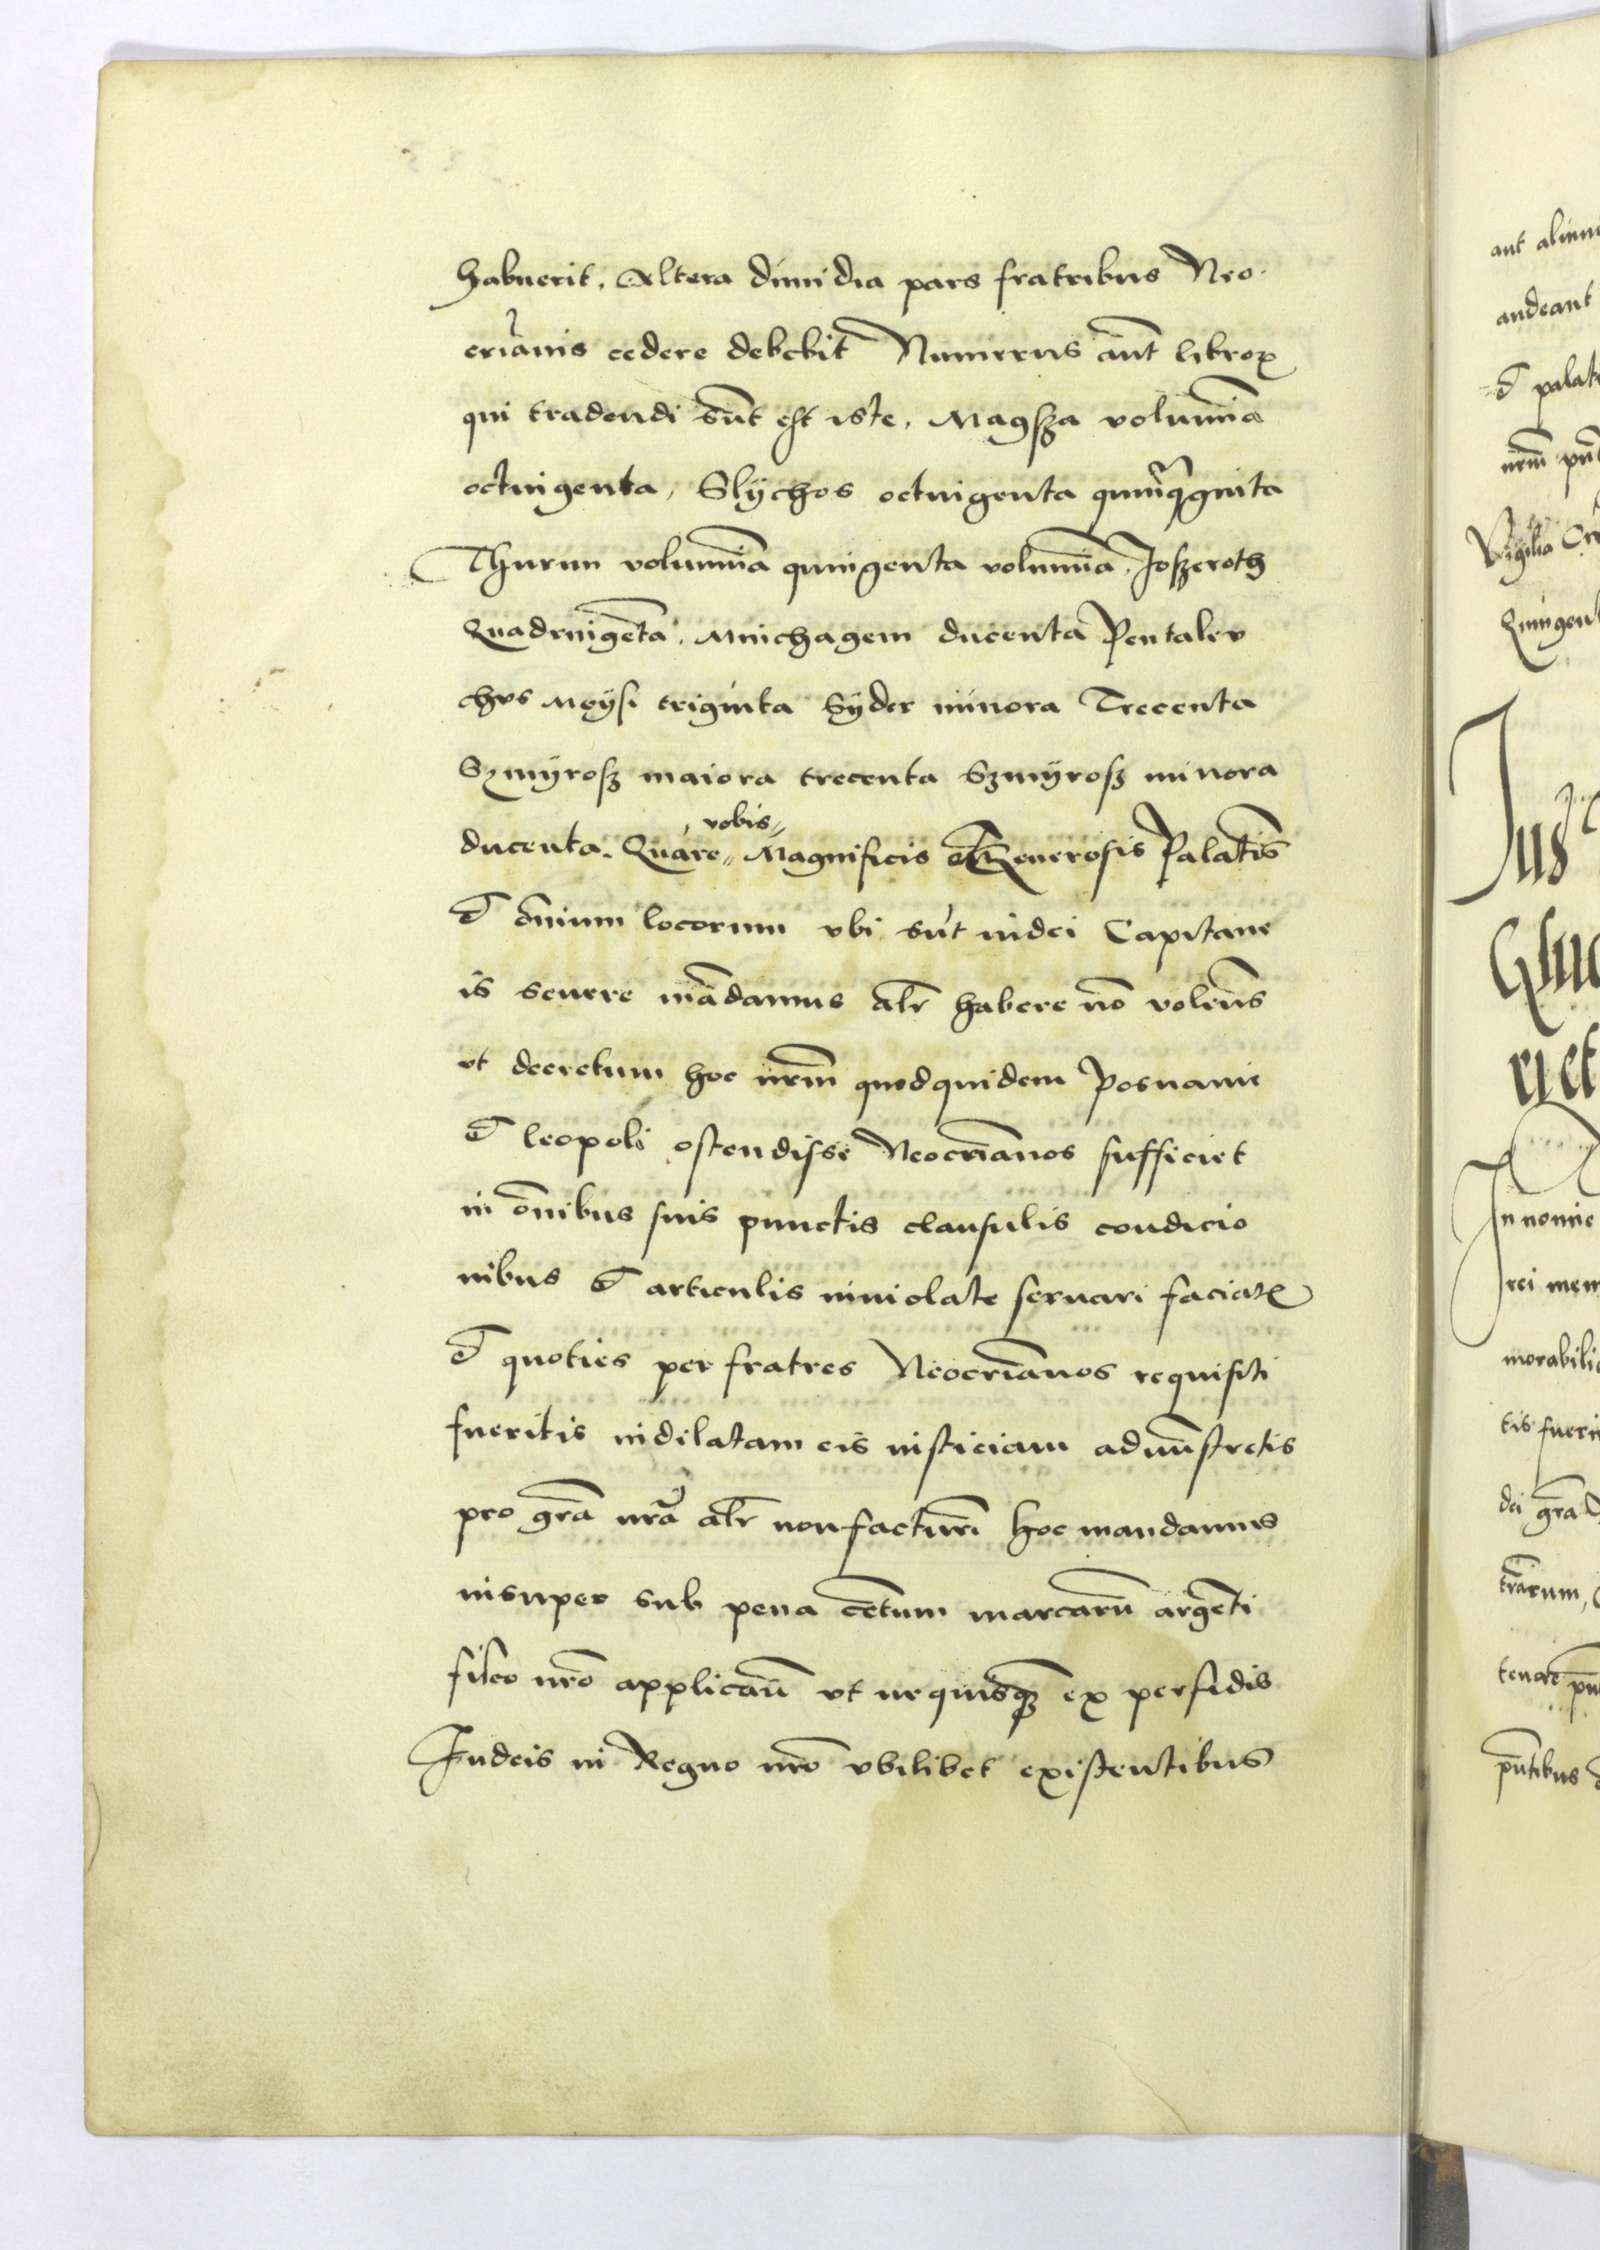 habuerit. Altera dimidia pars fratribus Neo-
cri̅anis cedere debebit Numerus aut̅ libroꝝ
qui tradendi su̅t est iste. Magsza volumi̅a
octingenta, Slÿchos octingenta qui̅q̅ginta
Thurim volumi̅a quingenta volumi̅a. Joszeroth
Quadringe̅ta. Mnichagem ducenta Pentaleu
chus Moÿsi triginta Sÿder minora Trecenta
Szmÿrosz maiora trecenta Szmÿrosz minora
ducenta. Quare vobis Magnificis et Generosis Palati̅s
et o̅nium locorum vbi su̅t iudei Capitane
is seuere ma̅damus alr̅ habere no̅ volen̅s
vt decretum hoc nr̅m quodquidem Posnanie
et leopoli ostendisse Neocri̅anos sufficiet
in o̅nibus suis punctis clausulis condicio
nibus et articulis inuiolate seruari faciatꝭ
et quoties per fratres Neocri̅anos requisiti
fueritis indilatam eis iusticiam admi̅stretis
pro gr̅a nr̅a alr̅ non facturi̅ hoc mandamus
insuper sub pena ce̅tum marcaru̅ arge̅ti
fisco nr̅o applican̅ vt ne quisq̅ ex perfidis
Iudeis in Regno nr̅o vbilibet existentibus
aut
audeant
et palat
nr̅m
Vigilia
Quingent
Jus
riet
In nomi̅e
rei mem
morabili
tis fueri
dei gr̅a
tr̅arum,
tenore
pn̅tibus